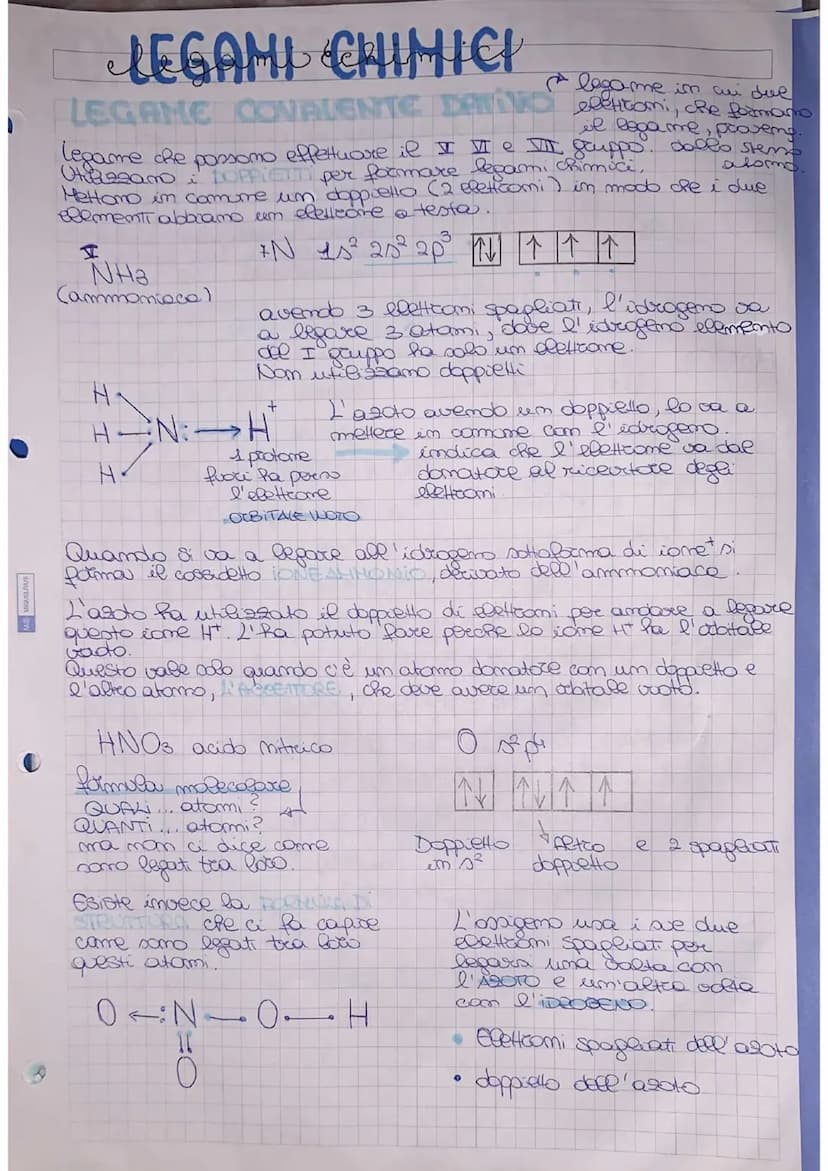 LEGAMI CHIMICI
legami chimici
LEGAME COVALENTE DATIVO
legame in cui due
elettroni, che formano
il legame, proveng.
dallo stesso
atomo.
legame che possono effettuare il V VI e VII gruppo.
Utilizzano i DOPPIETTI per formare legami chimici,
Mettono in comune un doppietto (2 elettroni) in modo che i due
elementi abbiano un elettrone a testa.
V
NH3
(ammoniaca)
7N 1s² 2s² 2p³ ↑↓ ↑ ↑ ↑
avendo 3 elettroni spagliati, l'idrogeno va
a legare 3 atomi, dove l'idrogeno elemento
del I gruppo ha solo un elettrone.
Non utilizzano doppietti
H
H N: → H+
H
1 protone
fuori ha perso
l'elettrone
ORBITALE VUOTO
L'azoto avendo un doppietto, lo va a
mettere in comune con l'idrogeno.
→ indica che l'elettrone va dal
donatore al ricevitore degli
elettroni
Quando si va a legare all'idrogeno sottoforma di ione+ si
forma il cosidetto IONE AMMONIO, derivato dell'ammoniaca.
L'azoto ha utilizzato il doppietto di elettroni per andare a legare
questo ione H+. L'ha potuto fare perché lo ione H+ ha l'orbitale
vuoto.
Questo vale solo quando c'è un atomo donatore con un doppietto e
l'altro atomo, L'ACCETTORE, che deve avere un orbitale vuoto.
HNO3 acido nitrico
O s² p⁴
formula molecolare
QUALI... atomi?
QUANTI... atomi?
ma non ci dice come
sono legati tra loro.
↑↓ ↑↓ ↑ ↑
Doppietto
in s²
Altro
doppietto
e 2 spagliati
Esiste invece la FORMULA DI
STRUTTURA che ci fa capire
come sono legati tra loro
questi atomi.
L'ossigeno usa i sue due
elettroni spagliati per
legarsi una volta con
l'AZOTO e un'altra volta
con l'IDROGENO.
O ←:N — O — H
||
O
• Elettroni spagliati dell'azoto
• doppietto dell'azoto